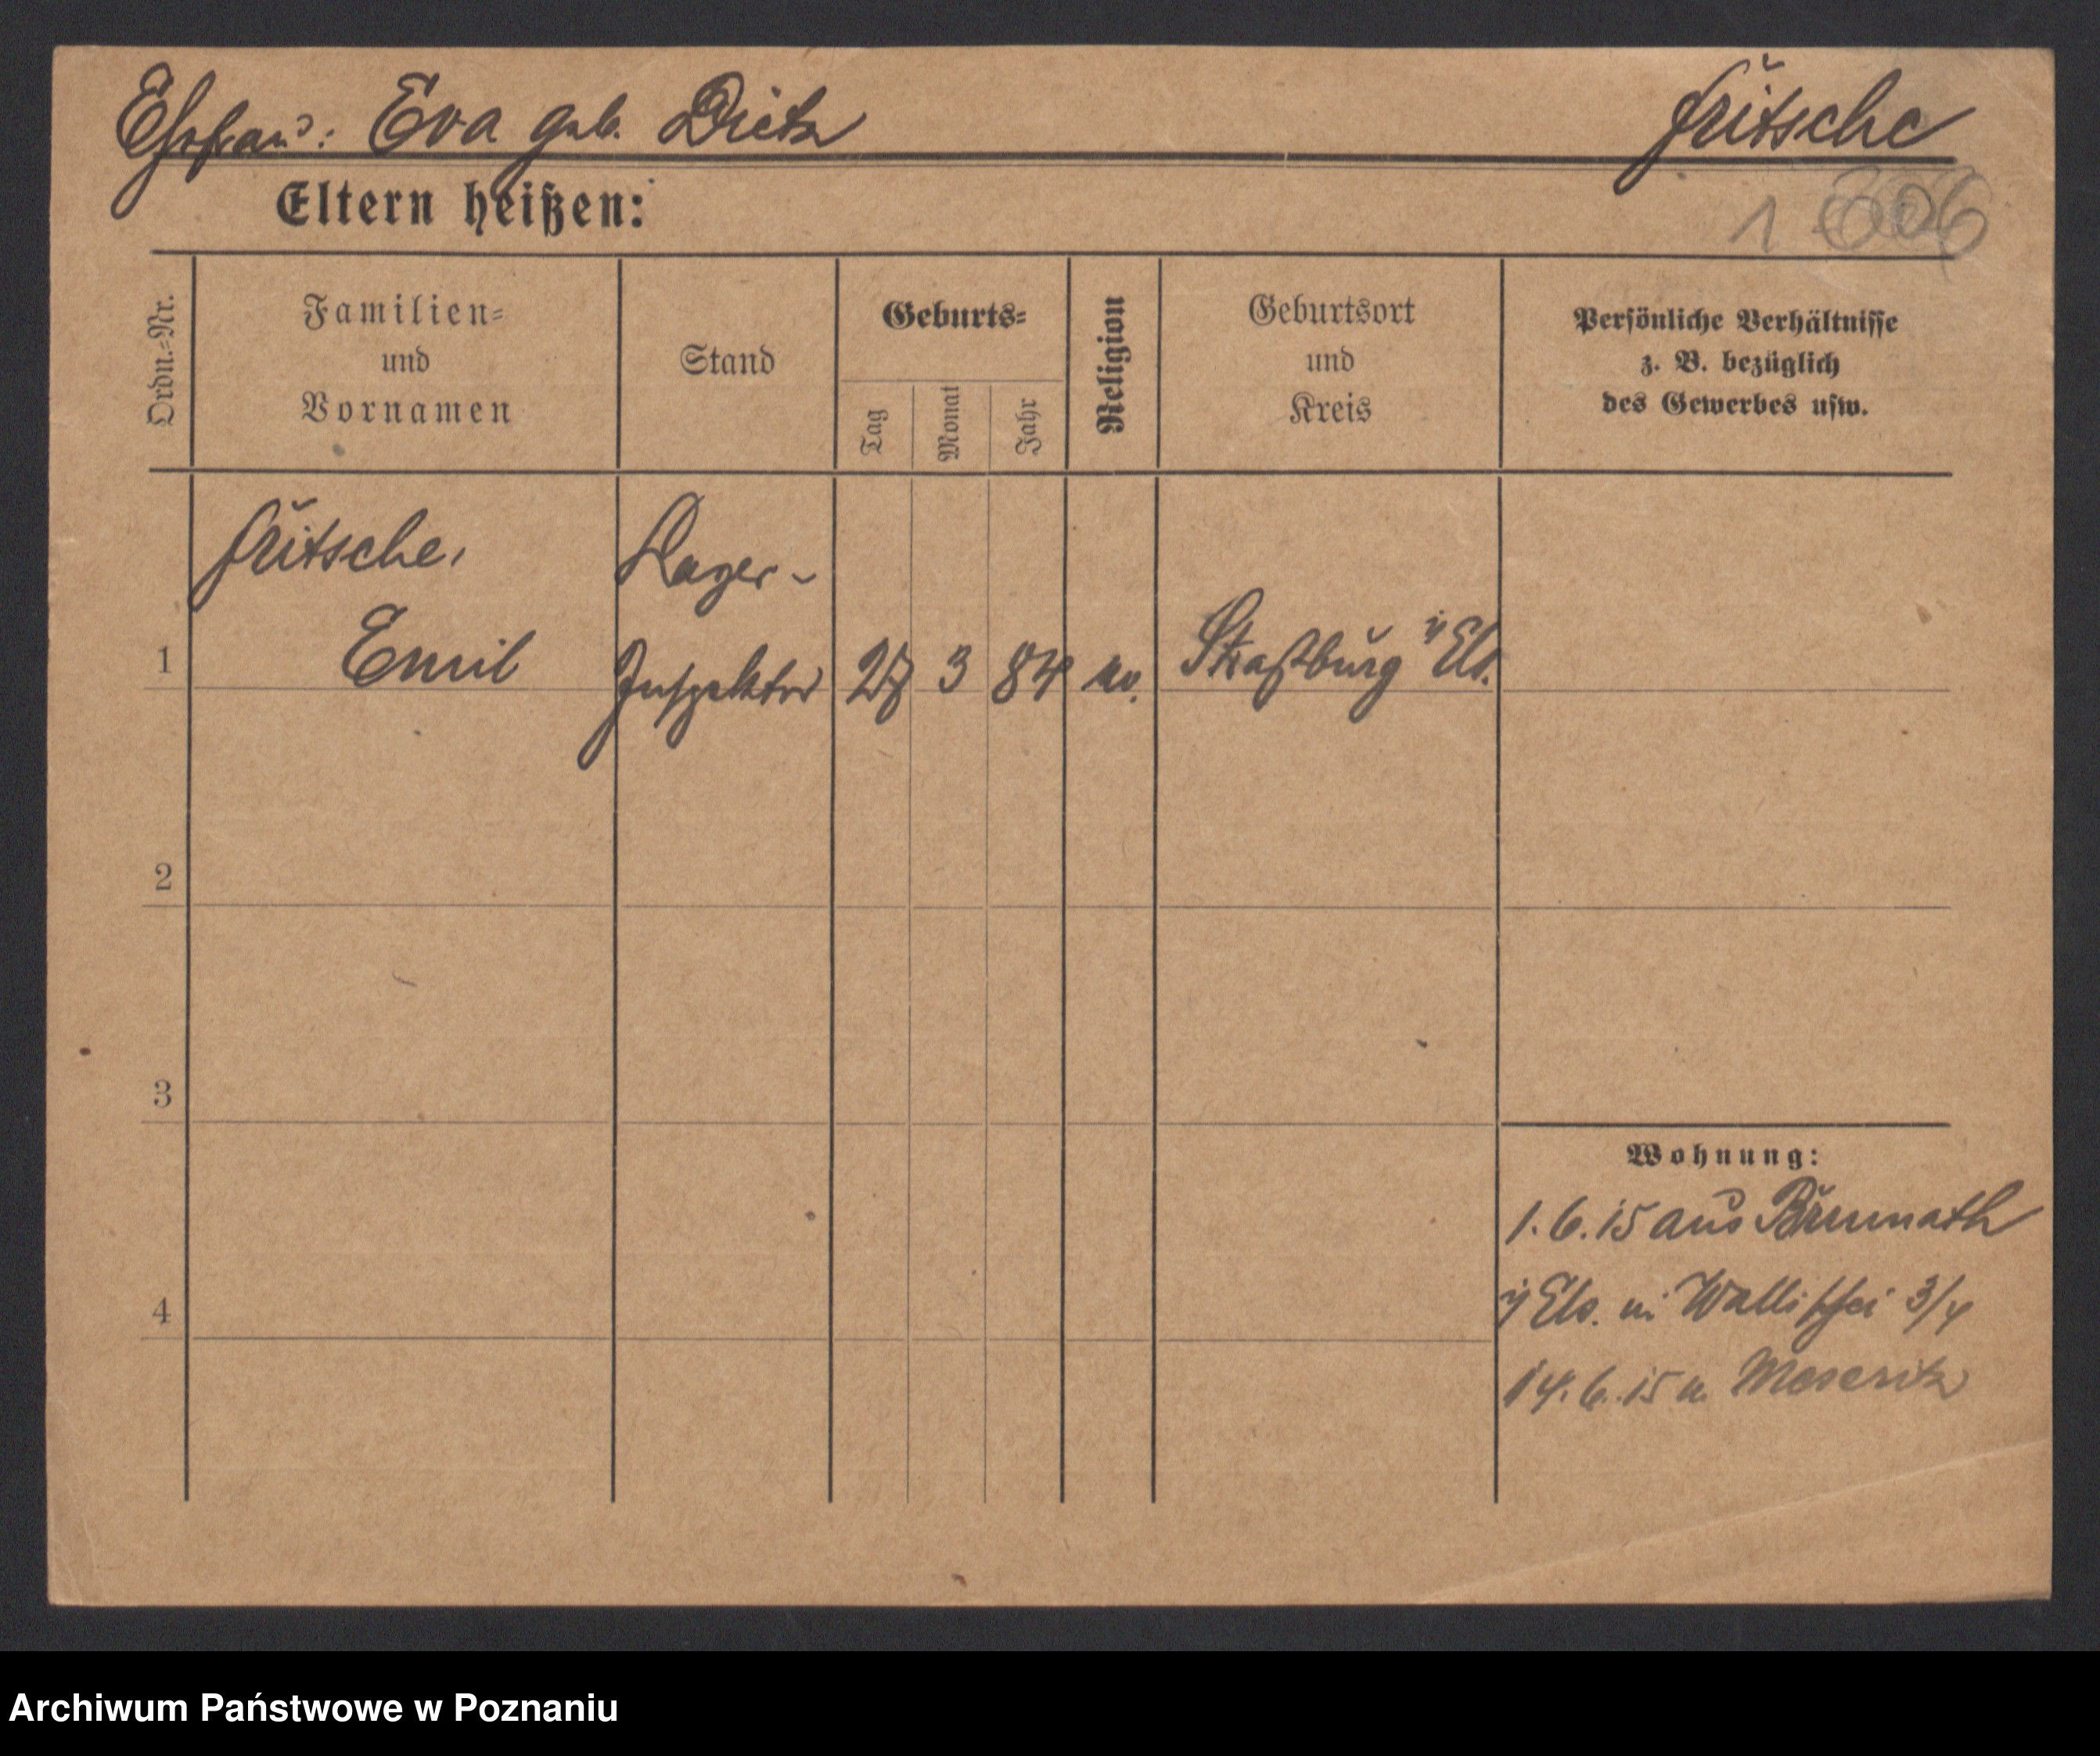 Ehefrau: Eva geb. Dietz
Fritsche
Eltern heißen:
1
Ordn.-Nr.
Familien-
und
Vornamen
Stand
Geburts-
Tag
Monat
Jahr
Religion
Geburtsort
und
Kreis
Persönliche Verhältnisse
z. B. bezüglich
des Gewerbes usw.
Fritsche,
Lager-
1
Emil
Inspektor
27
3
84
ev.
Straßburg i/Els.
2
3
4
Wohnung:
1. 6. 15 aus Brumath
i/Els. in Wallischei 3/4
14. 6. 15 n. Meseritz
Archiwum Państwowe w Poznaniu